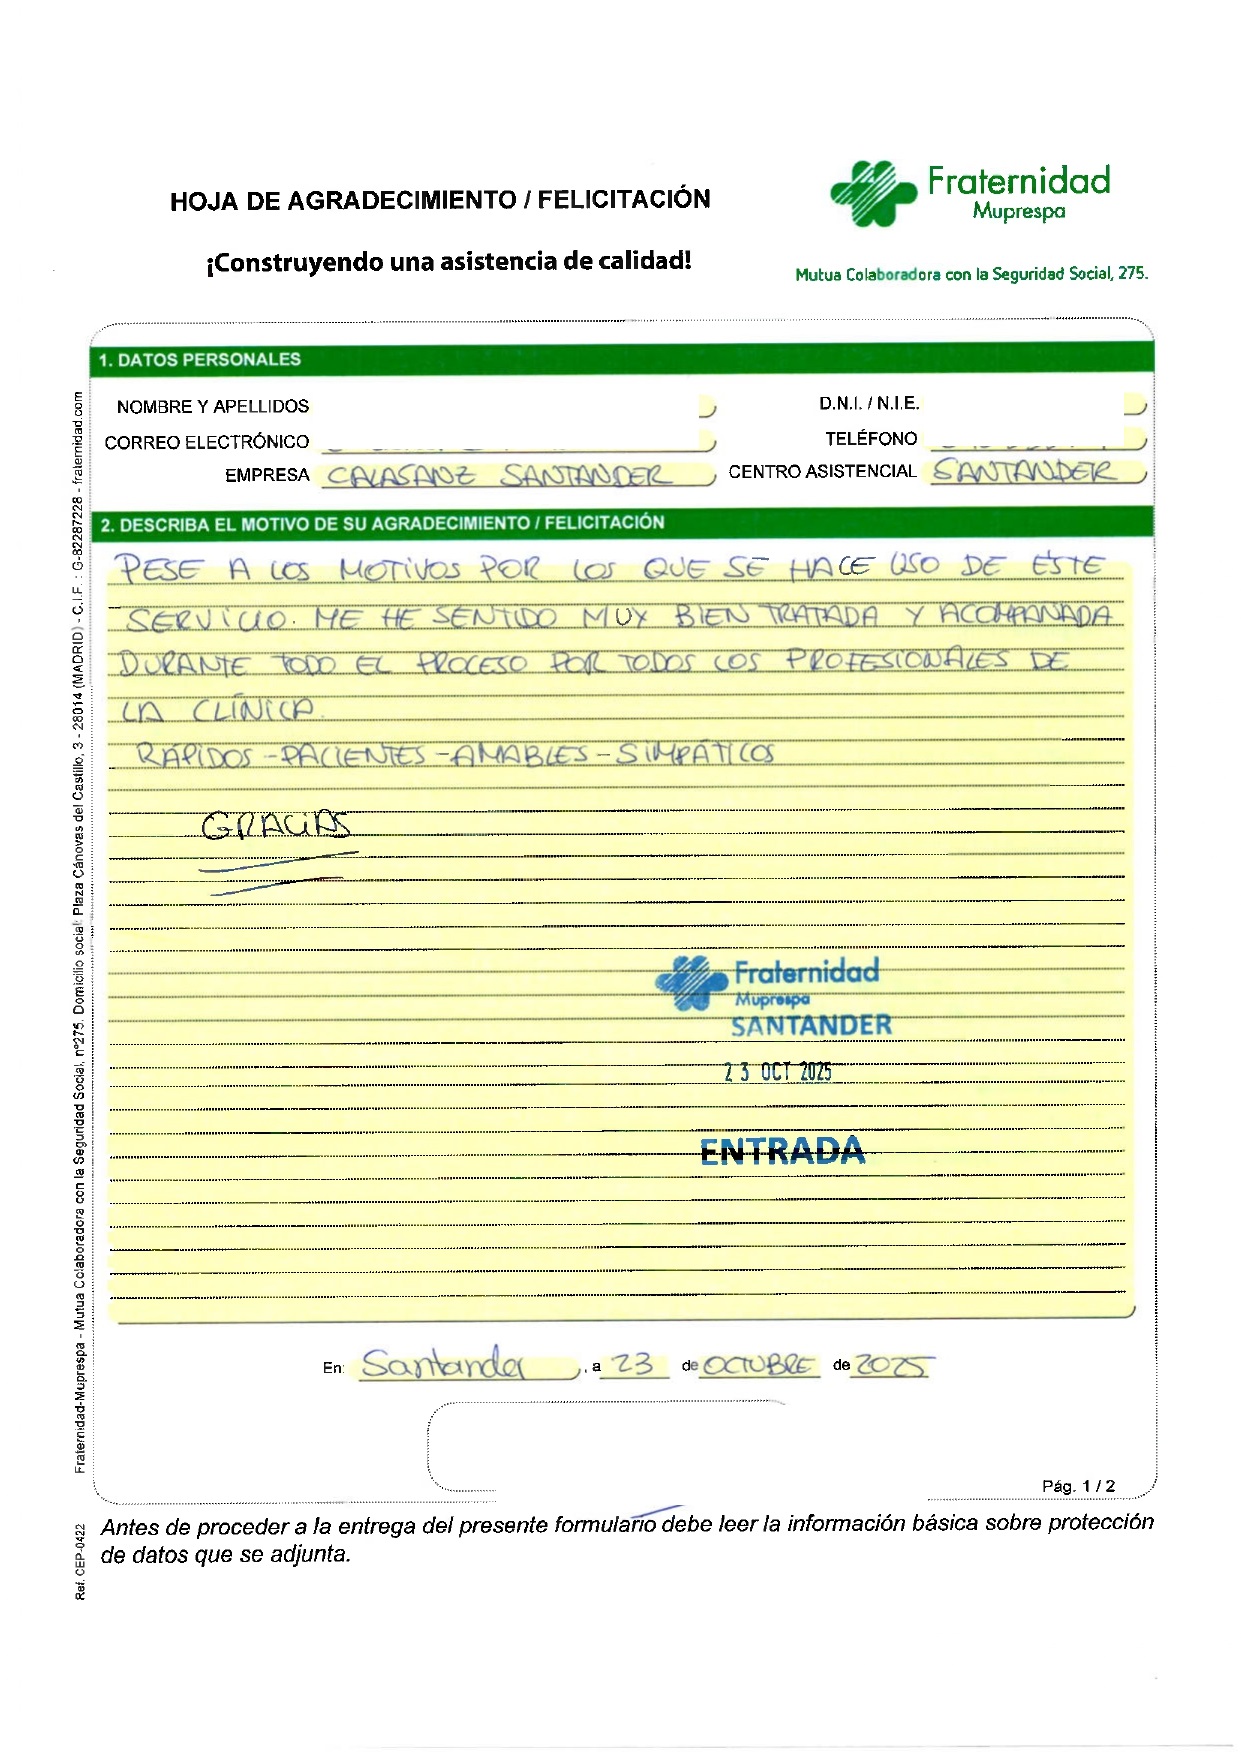 HOJA DE AGRADECIMIENTO / FELICITACIÓN
¡Construyendo una asistencia de calidad!
Fraternidad
Muprespa
Mutua Colaboradora con la Seguridad Social, 275.
1. DATOS PERSONALES
NOMBRE Y APELLIDOS
D.N.I. / N.I.E.
CORREO ELECTRÓNICO
TELÉFONO
EMPRESA CALASANZ SANTANDER
CENTRO ASISTENCIAL SANTANDER
2. DESCRIBA EL MOTIVO DE SU AGRADECIMIENTO / FELICITACIÓN
PESE A LOS MOTIVOS POR LOS QUE SE HACE USO DE ÉSTE
SERVICIO. ME HE SENTIDO MUY BIEN TRATADA Y ACOMPAÑADA
DURANTE TODO EL PROCESO POR TODOS LOS PROFESIONALES DE
LA CLÍNICA.
RÁPIDOS - PACIENTES - AMABLES - SIMPÁTICOS
GRACIAS
Fraternidad
Muprespa
SANTANDER
23 OCT 2025
ENTRADA
En: Santander, a 23 de OCTUBRE de 2025
Pág. 1 / 2
Antes de proceder a la entrega del presente formulario debe leer la información básica sobre protección
de datos que se adjunta.
Fraternidad-Muprespa - Mutua Colaboradora con la Seguridad Social, nº275. Domicilio social: Plaza Cánovas del Castillo, 3 - 28014 (MADRID) - C.I.F. : G-82287228 - fraternidad.com
Ref. CEP-0422